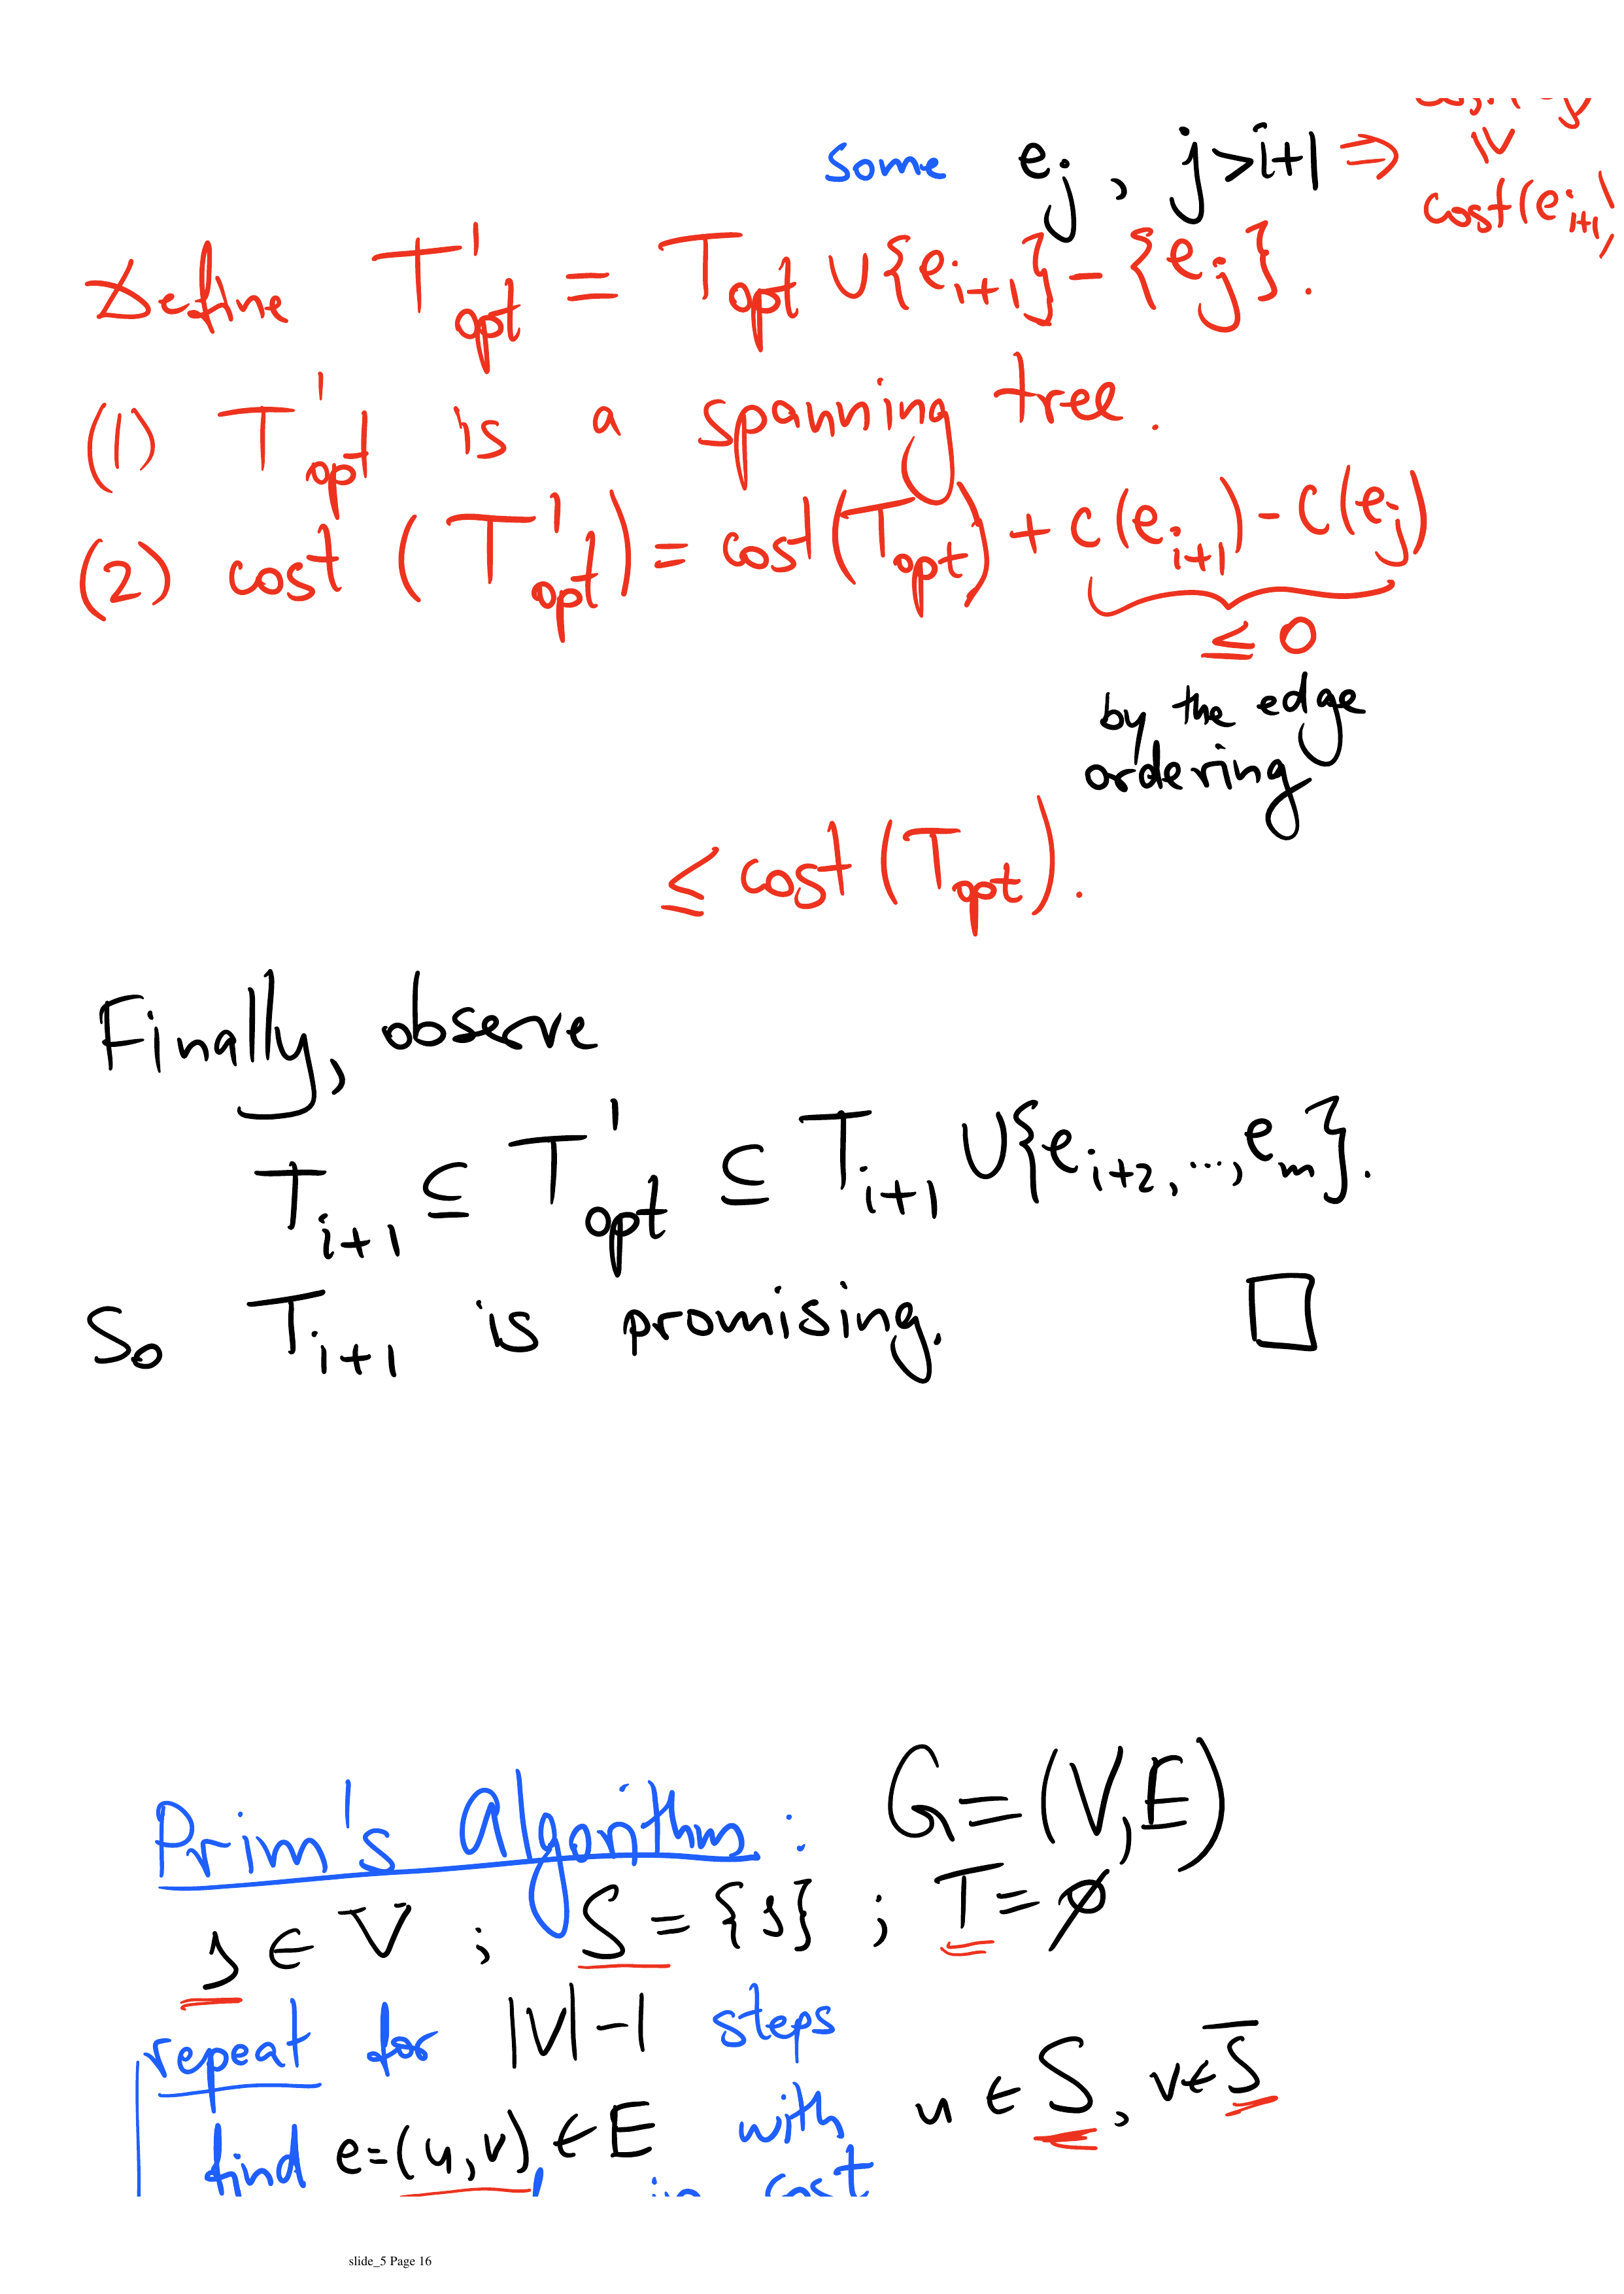 some e_j, j>i+1 ⇒
≥
cost(e_{i+1})
Define T'_opt = T_opt ∪{e_{i+1}}-{e_j}.
(1) T'_opt is a spanning tree.
(2) cost (T'_opt) = cost(T_opt) + c(e_{i+1}) - c(e_j)
≤ 0
by the edge
ordering
≤ cost(T_opt).
Finally, observe
T_{i+1} ⊆ T'_opt ⊆ T_{i+1} ∪{e_{i+2}, ..., e_m}.
So T_{i+1} is promising. □
Prim's Algorithm: G=(V,E)
s ∈ V ; S = {s} ; T = ∅
repeat for |V|-1 steps
find e=(u,v) ∈ E with u ∈ S, v ∈ S̅
cost
slide_5 Page 16